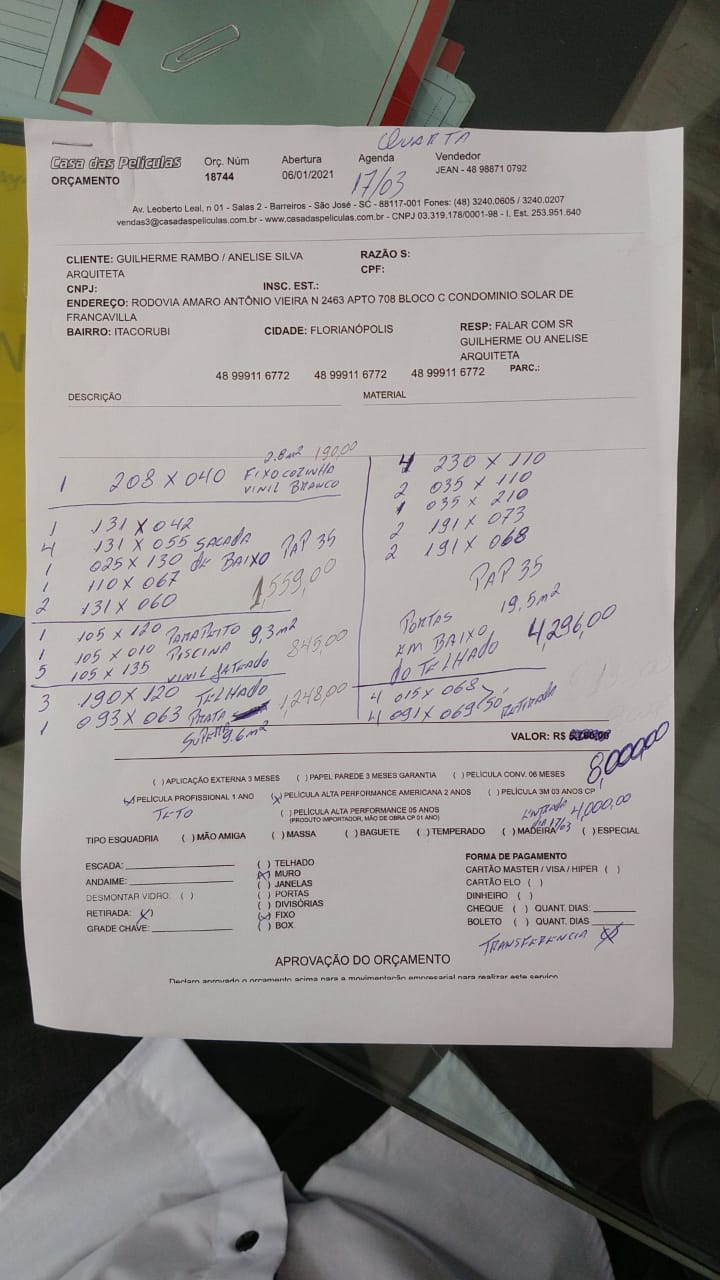 QUARTA
Casa das Películas Orç. Núm Abertura Agenda Vendedor
ORÇAMENTO 18744 06/01/2021 17/03 JEAN - 48 98871 0792
Av. Leoberto Leal, n 01 - Salas 2 - Barreiros - São José - SC - 88117-001 Fones: (48) 3240.0605 / 3240.0207
vendas3@casadaspeliculas.com.br - www.casadaspeliculas.com.br - CNPJ 03.319.178/0001-98 - I. Est. 253.951.640
CLIENTE: GUILHERME RAMBO / ANELISE SILVA RAZÃO S:
ARQUITETA CPF:
CNPJ: INSC. EST.:
ENDEREÇO: RODOVIA AMARO ANTÔNIO VIEIRA N 2463 APTO 708 BLOCO C CONDOMINIO SOLAR DE
FRANCAVILLA
BAIRRO: ITACORUBI CIDADE: FLORIANÓPOLIS RESP: FALAR COM SR
GUILHERME OU ANELISE
ARQUITETA
48 99911 6772 48 99911 6772 48 99911 6772 PARC.:
DESCRIÇÃO MATERIAL
2.8m2 190,00
1 208 X 040 FIXO COZINHA
VINIL BRANCO
1 131 X 042
4 131 X 055 SACADA
1 025 X 130 DE BAIXO PAP 35
1 110 X 067
2 131 X 060 1,559,00
1 105 X 120 PARAPEITO 9,3m2
1 105 X 010 PISCINA 845,00
5 105 X 135 VINIL JATEADO
3 190 X 120 TELHADO 1,248,00
1 093 X 063 PRATA
9.6m2
4 230 X 110
2 035 X 110
1 035 X 210
2 191 X 073
2 191 X 068
PAP 35
PORTAS 19,5m2
EM BAIXO
DO TELHADO 4,296,00
4 015 X 068
4 091 X 069 SÓ RETIRADA
VALOR: R$
8,000,00
( ) APLICAÇÃO EXTERNA 3 MESES ( ) PAPEL PAREDE 3 MESES GARANTIA ( ) PELÍCULA CONV. 06 MESES
(X) PELÍCULA PROFISSIONAL 1 ANO (X) PELÍCULA ALTA PERFORMANCE AMERICANA 2 ANOS ( ) PELÍCULA 3M 03 ANOS CP
TETO
( ) PELÍCULA ALTA PERFORMANCE 05 ANOS
(PRODUTO IMPORTADOR, MÃO DE OBRA CP 01 ANO)
ENTRADA 4,000,00
DIA 17/03
TIPO ESQUADRIA ( ) MÃO AMIGA ( ) MASSA ( ) BAGUETE ( ) TEMPERADO ( ) MADEIRA ( ) ESPECIAL
ESCADA:
ANDAIME:
DESMONTAR VIDRO: ( )
RETIRADA: (X)
GRADE CHAVE:
( ) TELHADO
(X) MURO
( ) JANELAS
( ) PORTAS
( ) DIVISÓRIAS
(X) FIXO
( ) BOX
FORMA DE PAGAMENTO
CARTÃO MASTER / VISA / HIPER ( )
CARTÃO ELO ( )
DINHEIRO ( )
CHEQUE ( ) QUANT. DIAS:
BOLETO ( ) QUANT. DIAS
TRANSFERENCIA (X)
APROVAÇÃO DO ORÇAMENTO
Declaro aprovado o orçamento acima para a movimentação empresarial para realizar este serviço